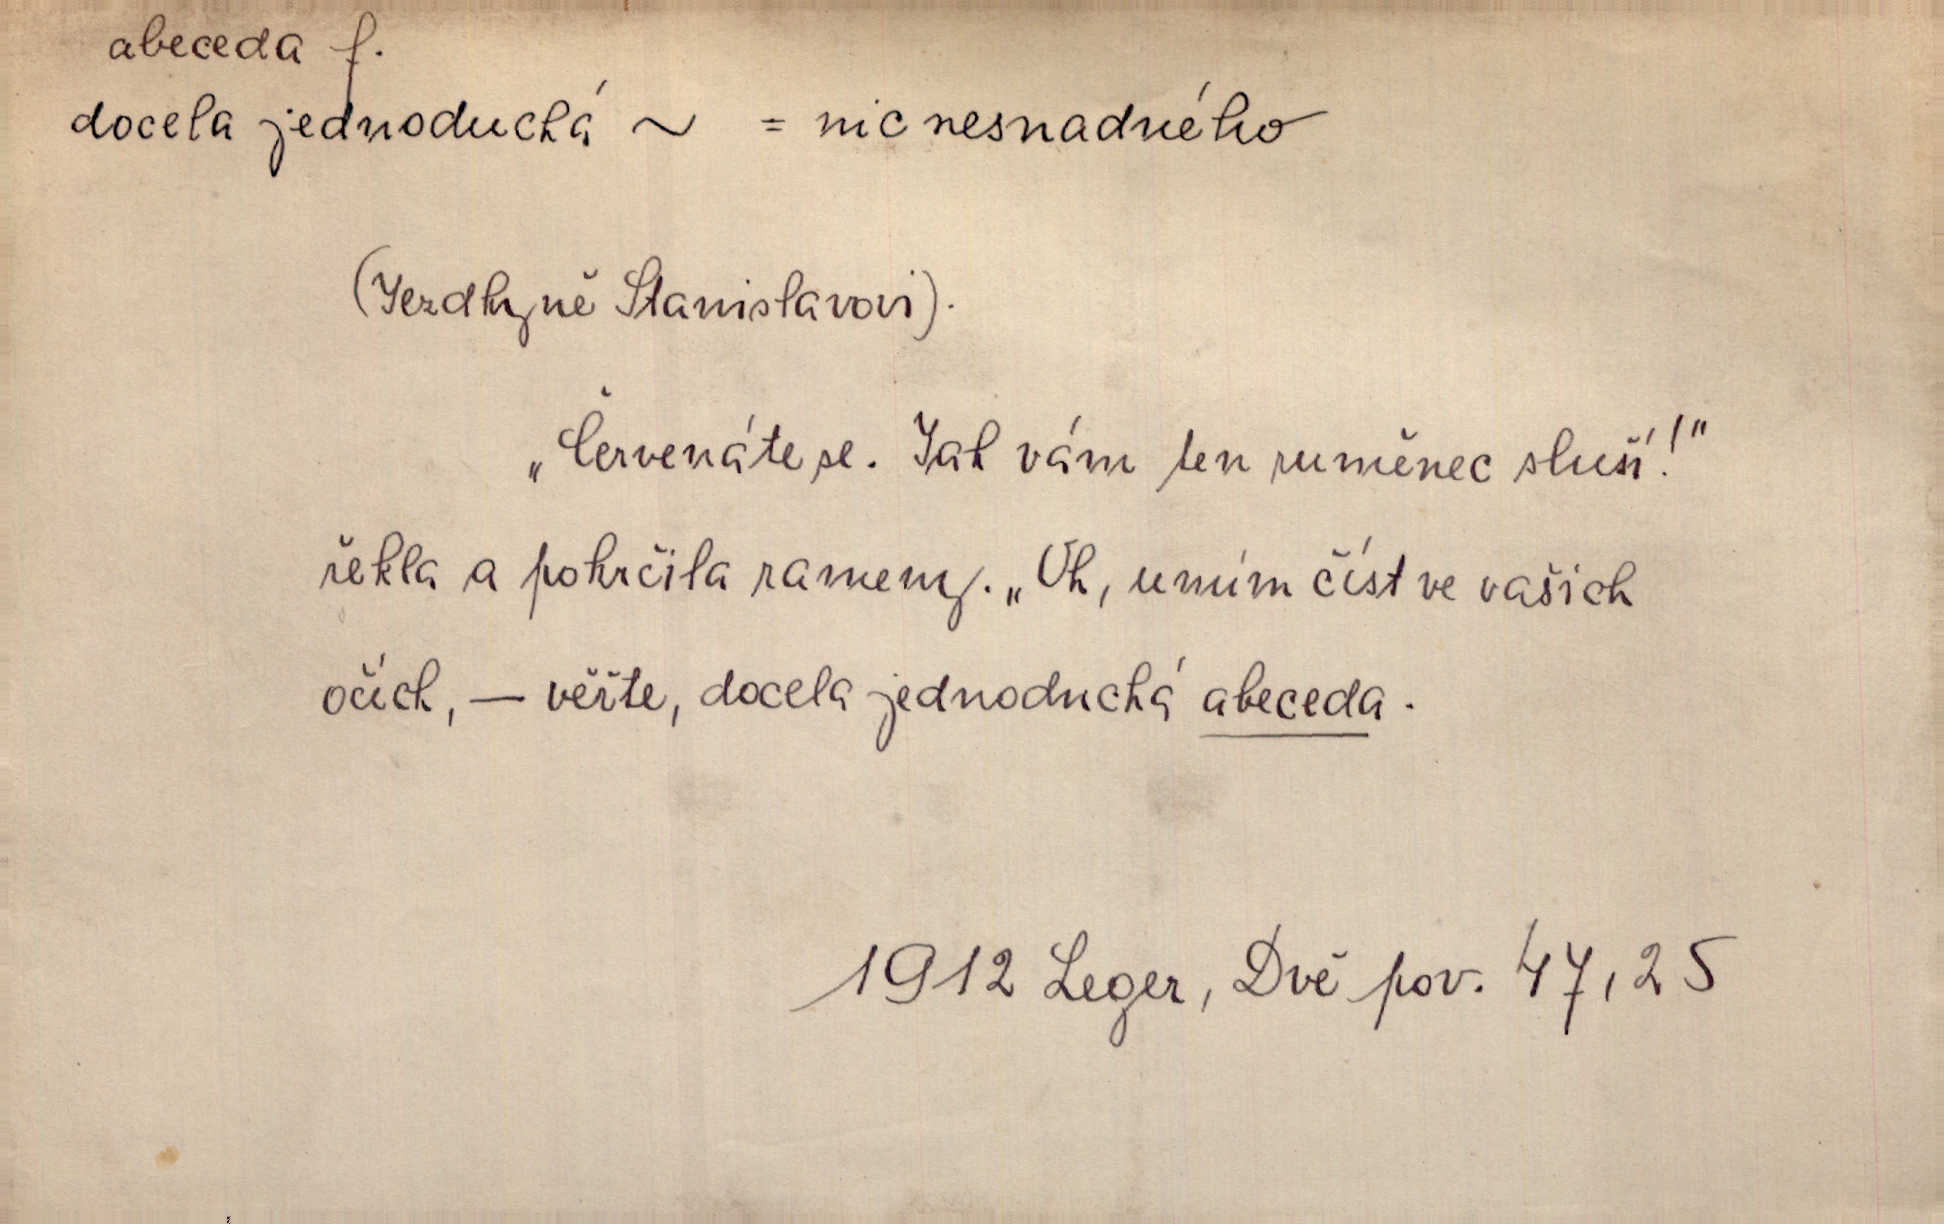 abeceda f.
docela jednoduchá ~ = nic nesnadného
(Jezdkyně Stanislavovi).
„Červenáte se. Jak vám ten ruměnec sluší!"
řekla a pokrčila rameny. „Oh, umím číst ve vašich
očích, — věřte, docela jednoduchá abeceda.
1912 Leger, Dvě pov. 47,25